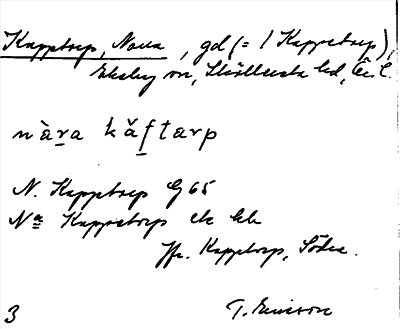 Kapptorp, Norra, gd (= 1 Kapptorp),
Ekeby sn, Skyllersta hd, Ör. l.
nàra kǎftarp
N. Kapptorp G 65
Na Kapptorp ek kb
Jfr. Kapptorp, Södra.
3 T. Ericsson